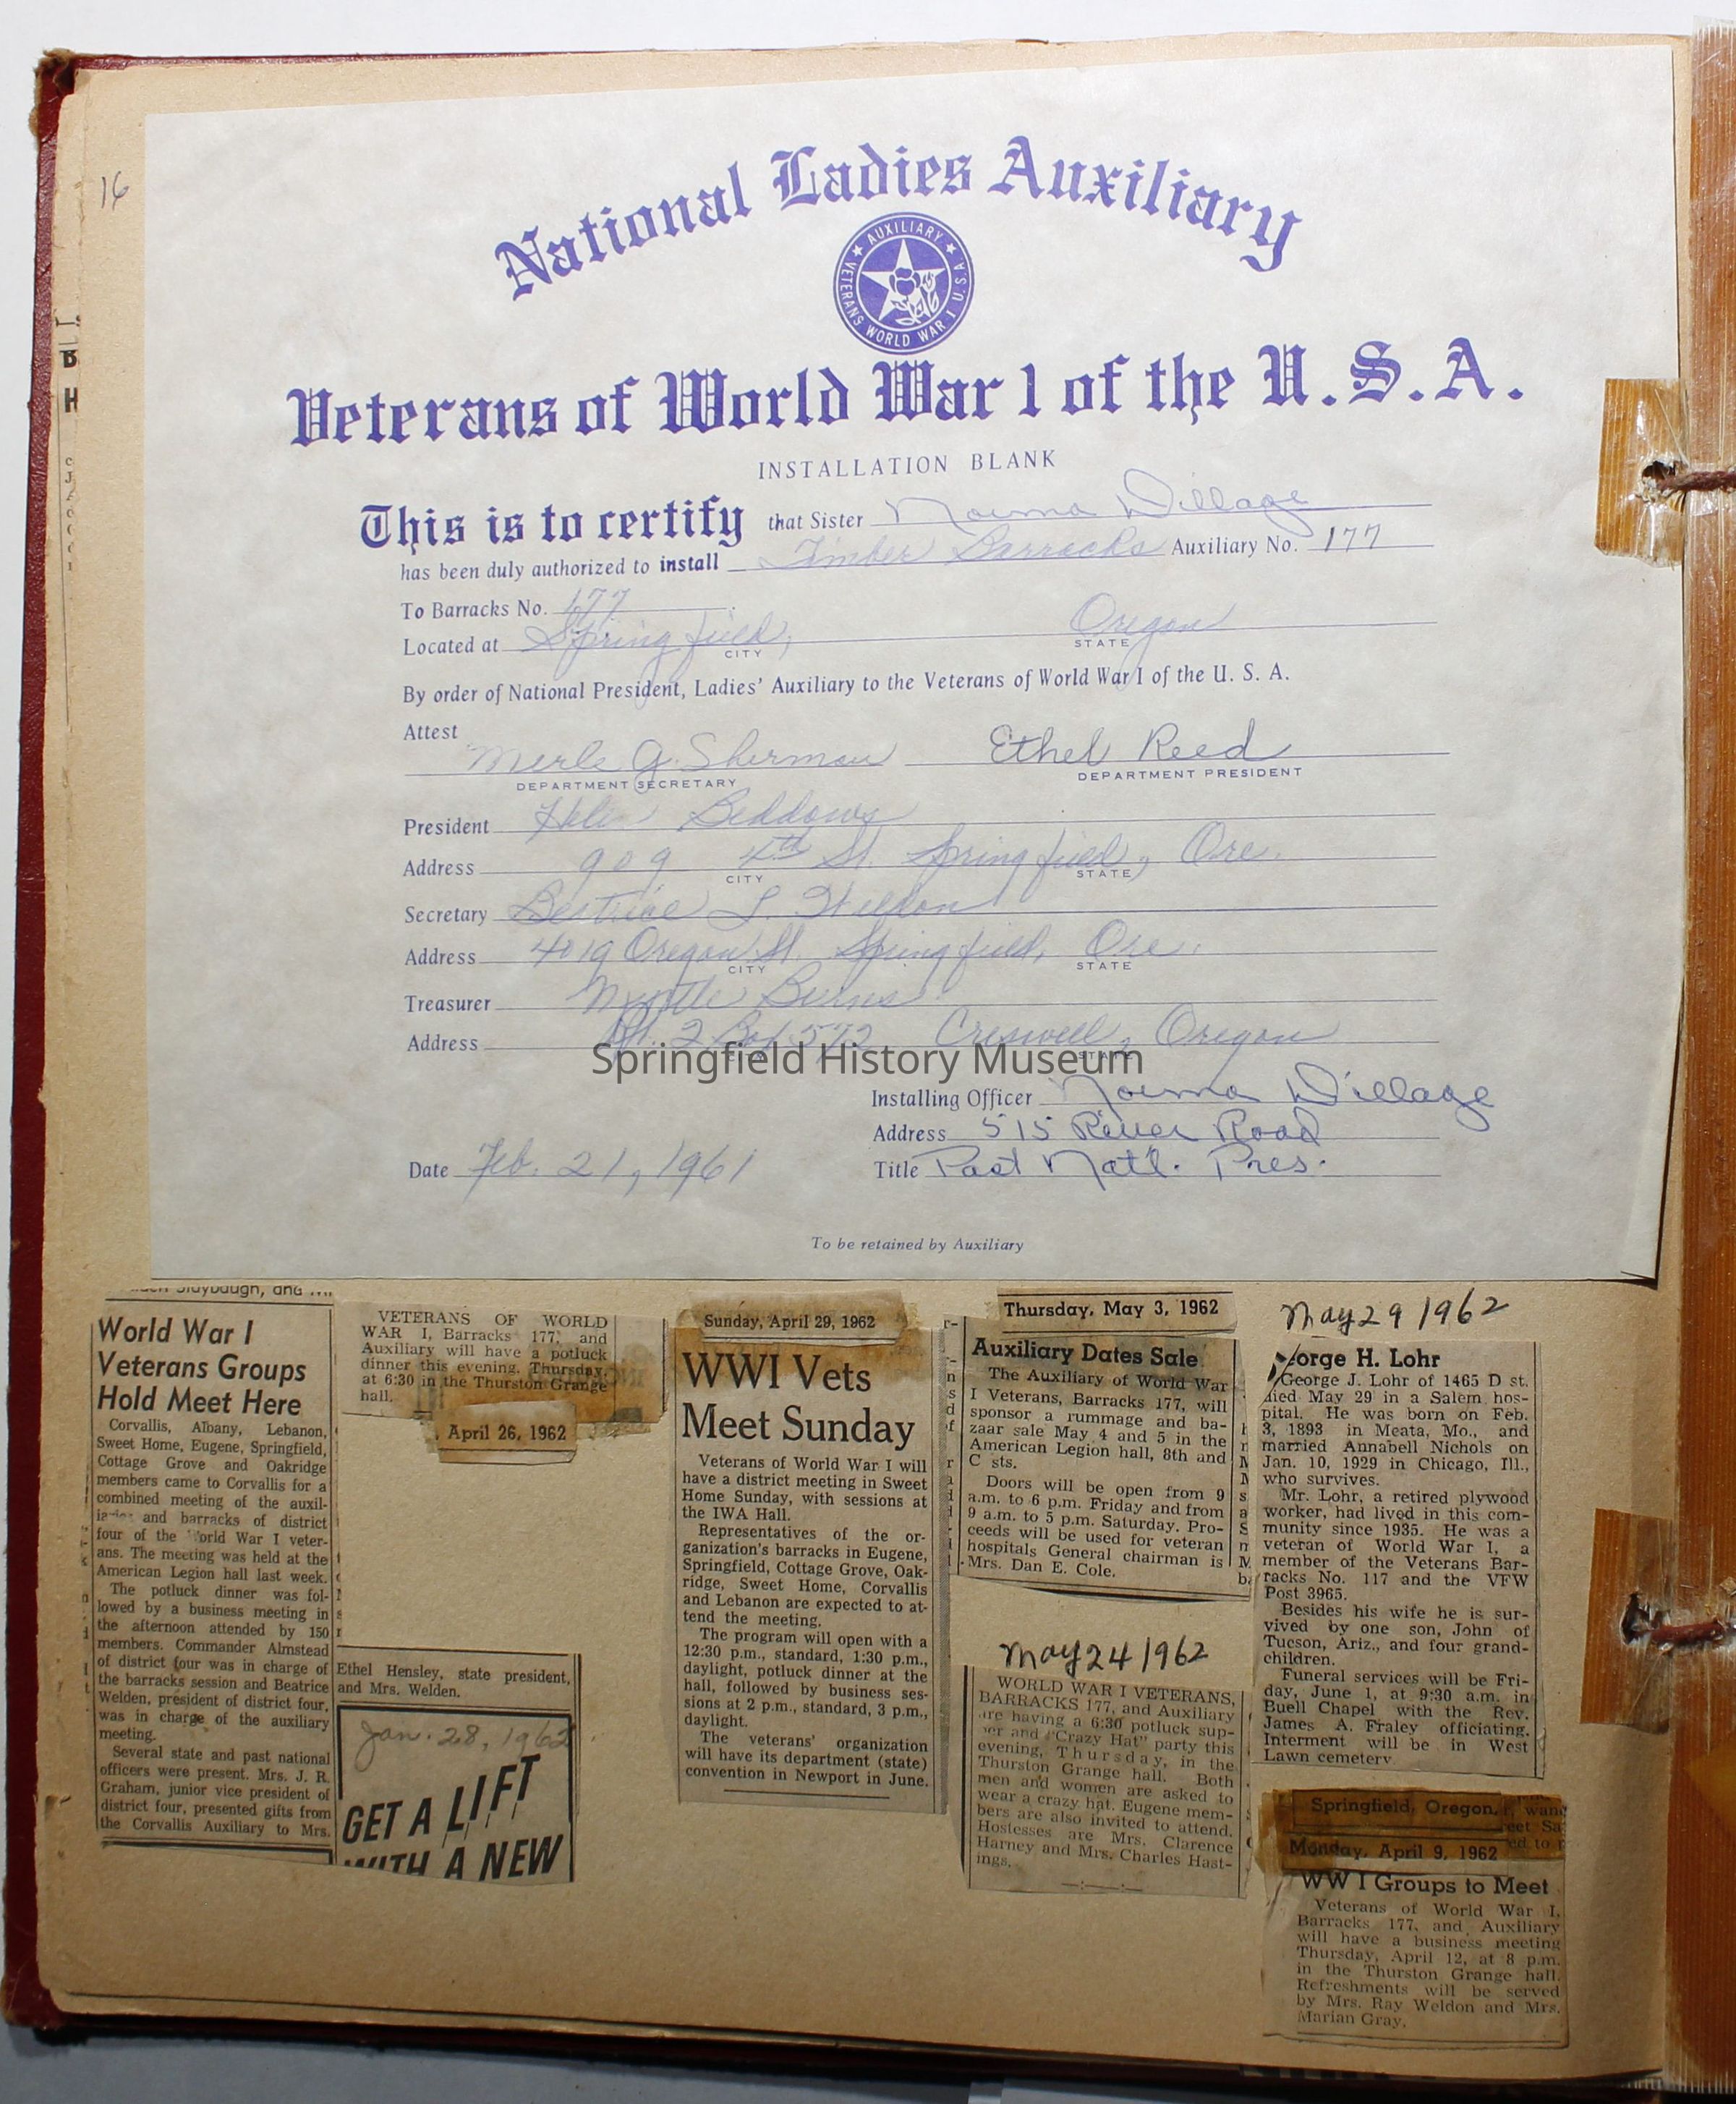 16
National Ladies Auxiliary
AUXILIARY
VETERANS WORLD WAR I U.S.A
Veterans of World War 1 of the U.S.A.
INSTALLATION BLANK
This is to certify that Sister Norma Dillage
has been duly authorized to install Timber Barracks Auxiliary No. 177
To Barracks No. 177
Located at Springfield, Oregon
CITY STATE
By order of National President, Ladies' Auxiliary to the Veterans of World War I of the U. S. A.
Attest
Merle G. Sherman Ethel Reed
DEPARTMENT SECRETARY DEPARTMENT PRESIDENT
President Helen Beddows
Address 909 4th St. Springfield, Ore.
CITY STATE
Secretary Beatrice L. Weldon
Address 4019 Oregon St. Springfield, Ore.
CITY STATE
Treasurer Myrtle Burns
Address Rt. 2 Box 572 Creswell, Oregon
STATE
Springfield History Museum
Installing Officer Norma Dillage
Address 515 River Road
Date Feb. 21, 1961
Title Past Nat'l. Pres.
To be retained by Auxiliary
World War I
Veterans Groups
Hold Meet Here
Corvallis, Albany, Lebanon,
Sweet Home, Eugene, Springfield,
Cottage Grove and Oakridge
members came to Corvallis for a
combined meeting of the auxil-
iaries and barracks of district
four of the World War I veter-
ans. The meeting was held at the
American Legion hall last week.
The potluck dinner was fol-
lowed by a business meeting in
the afternoon attended by 150
members. Commander Almstead
of district four was in charge of
the barracks session and Beatrice
Welden, president of district four,
was in charge of the auxiliary
meeting.
Several state and past national
officers were present. Mrs. J. R.
Graham, junior vice president of
district four, presented gifts from
the Corvallis Auxiliary to Mrs.
Ethel Hensley, state president,
and Mrs. Welden.
Jan. 28, 1962
GET A LIFT
WITH A NEW
VETERANS OF WORLD
WAR I, Barracks 177, and
Auxiliary will have a potluck
dinner this evening, Thursday,
at 6:30 in the Thurston Grange
hall.
April 26, 1962
Sunday, April 29, 1962
WWI Vets
Meet Sunday
Veterans of World War I will
have a district meeting in Sweet
Home Sunday, with sessions at
the IWA Hall.
Representatives of the or-
ganization's barracks in Eugene,
Springfield, Cottage Grove, Oak-
ridge, Sweet Home, Corvallis
and Lebanon are expected to at-
tend the meeting.
The program will open with a
12:30 p.m., standard, 1:30 p.m.,
daylight, potluck dinner at the
hall, followed by business ses-
sions at 2 p.m., standard, 3 p.m.,
daylight.
The veterans' organization
will have its department (state)
convention in Newport in June.
Thursday, May 3, 1962
Auxiliary Dates Sale
The Auxiliary of World War
I Veterans, Barracks 177, will
sponsor a rummage and ba-
zaar sale May 4 and 5 in the
American Legion hall, 8th and
C sts.
Doors will be open from 9
a.m. to 6 p.m. Friday and from
9 a.m. to 5 p.m. Saturday. Pro-
ceeds will be used for veteran
hospitals General chairman is
Mrs. Dan E. Cole.
May 24 1962
WORLD WAR I VETERANS,
BARRACKS 177, and Auxiliary
are having a 6:30 potluck sup-
per and "Crazy Hat" party this
evening, Thursday, in the
Thurston Grange hall. Both
men and women are asked to
wear a crazy hat. Eugene mem-
bers are also invited to attend.
Hostesses are Mrs. Clarence
Harney and Mrs. Charles Hast-
ings.
May 29 1962
George H. Lohr
George J. Lohr of 1465 D st.
died May 29 in a Salem hos-
pital. He was born on Feb.
3, 1893 in Meata, Mo., and
married Annabell Nichols on
Jan. 10, 1929 in Chicago, Ill.,
who survives.
Mr. Lohr, a retired plywood
worker, had lived in this com-
munity since 1935. He was a
veteran of World War I, a
member of the Veterans Bar-
racks No. 117 and the VFW
Post 3965.
Besides his wife he is sur-
vived by one son, John of
Tucson, Ariz., and four grand-
children.
Funeral services will be Fri-
day, June 1, at 9:30 a.m. in
Buell Chapel with the Rev.
James A. Fraley officiating.
Interment will be in West
Lawn cemetery.
Springfield, Oregon,
Monday, April 9, 1962
WW I Groups to Meet
Veterans of World War I,
Barracks 177, and Auxiliary
will have a business meeting
Thursday, April 12, at 8 p.m.
in the Thurston Grange hall.
Refreshments will be served
by Mrs. Ray Weldon and Mrs.
Marian Gray.